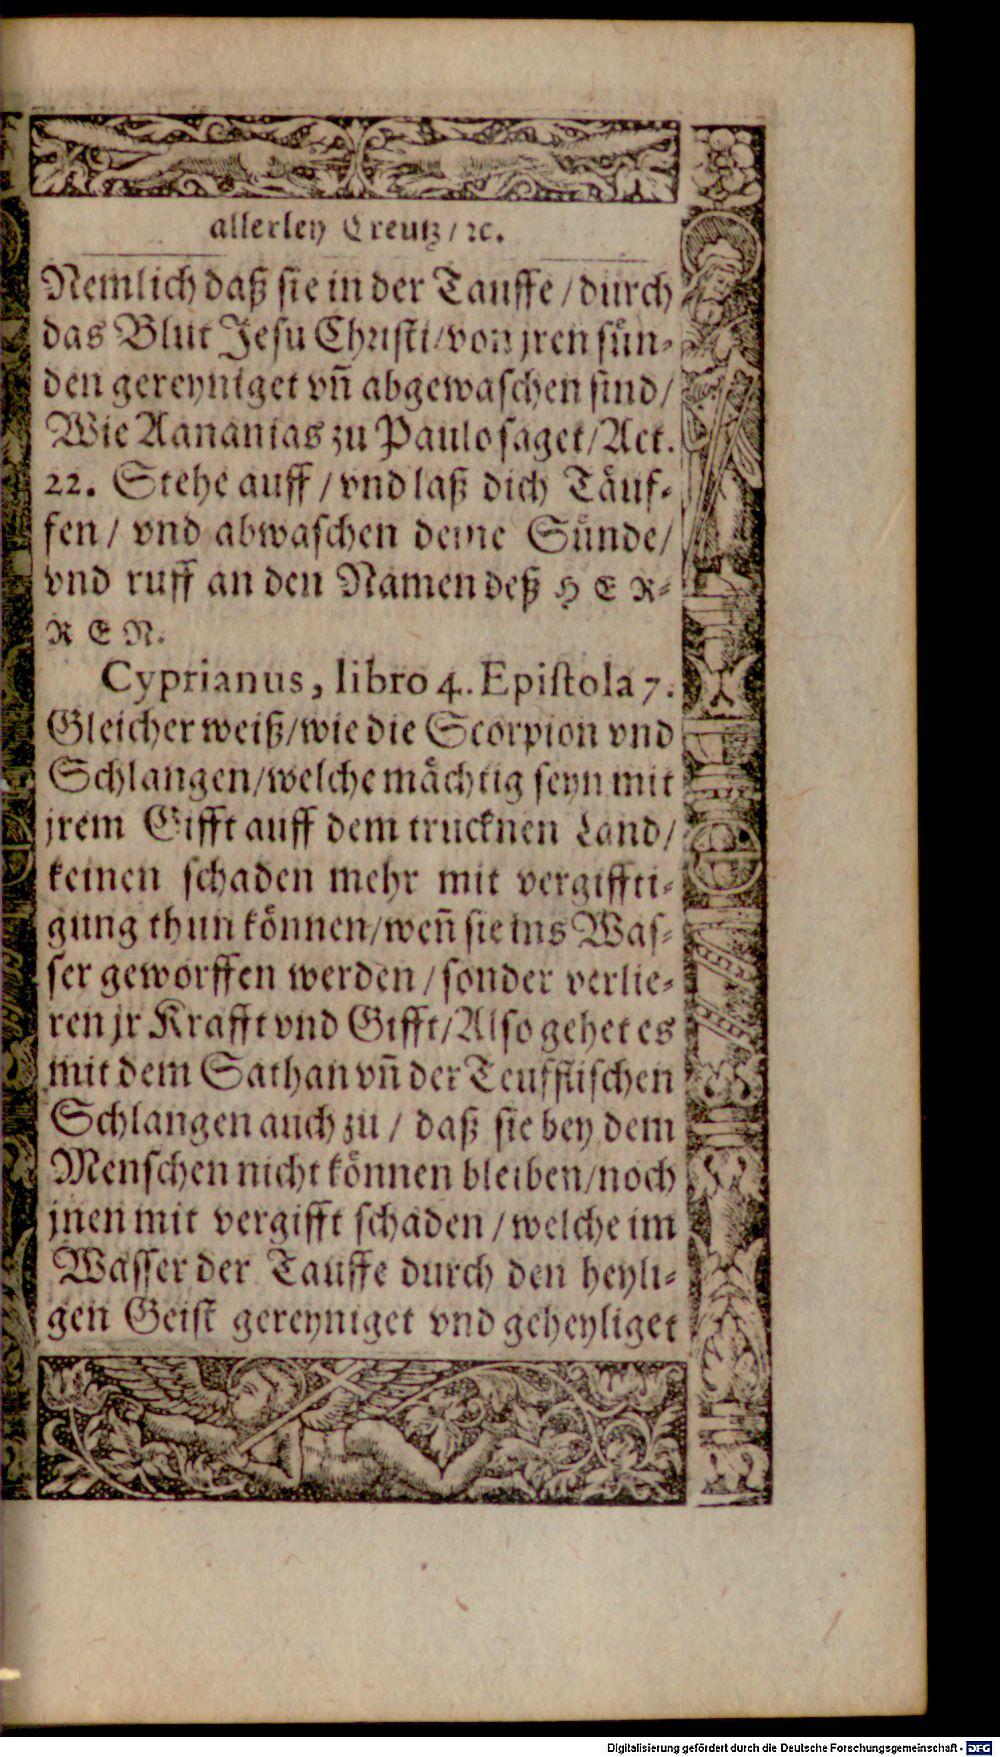 allerley Creutz / ꝛc.
Nemlich daß sie in der Tauffe / durch
das Blut Jesu Christi / von jren sün-
den gereyniget vñ abgewaschen sind /
Wie Aananias zu Paulo saget / Act.
22. Stehe auff / vnd laß dich Täuf-
fen / vnd abwaschen deine Sünde /
vnd ruff an den Namen deß HER-
REN.
Cyprianus, libro 4. Epistola 7.
Gleicher weiß / wie die Scorpion vnd
Schlangen / welche mächtig seyn mit
jrem Gifft auff dem trucknen Land /
keinen schaden mehr mit vergiffti-
gung thun können / weñ sie ins Was-
ser geworffen werden / sonder verlie-
ren jr Krafft vnd Gifft / Also gehet es
mit dem Sathan vñ der Teufflischen
Schlangen auch zu / daß sie bey dem
Menschen nicht können bleiben / noch
jnen mit vergifft schaden / welche im
Wasser der Tauffe durch den heyli-
gen Geist gereyniget vnd geheyliget
Digitalisierung gefördert durch die Deutsche Forschungsgemeinschaft - DFG